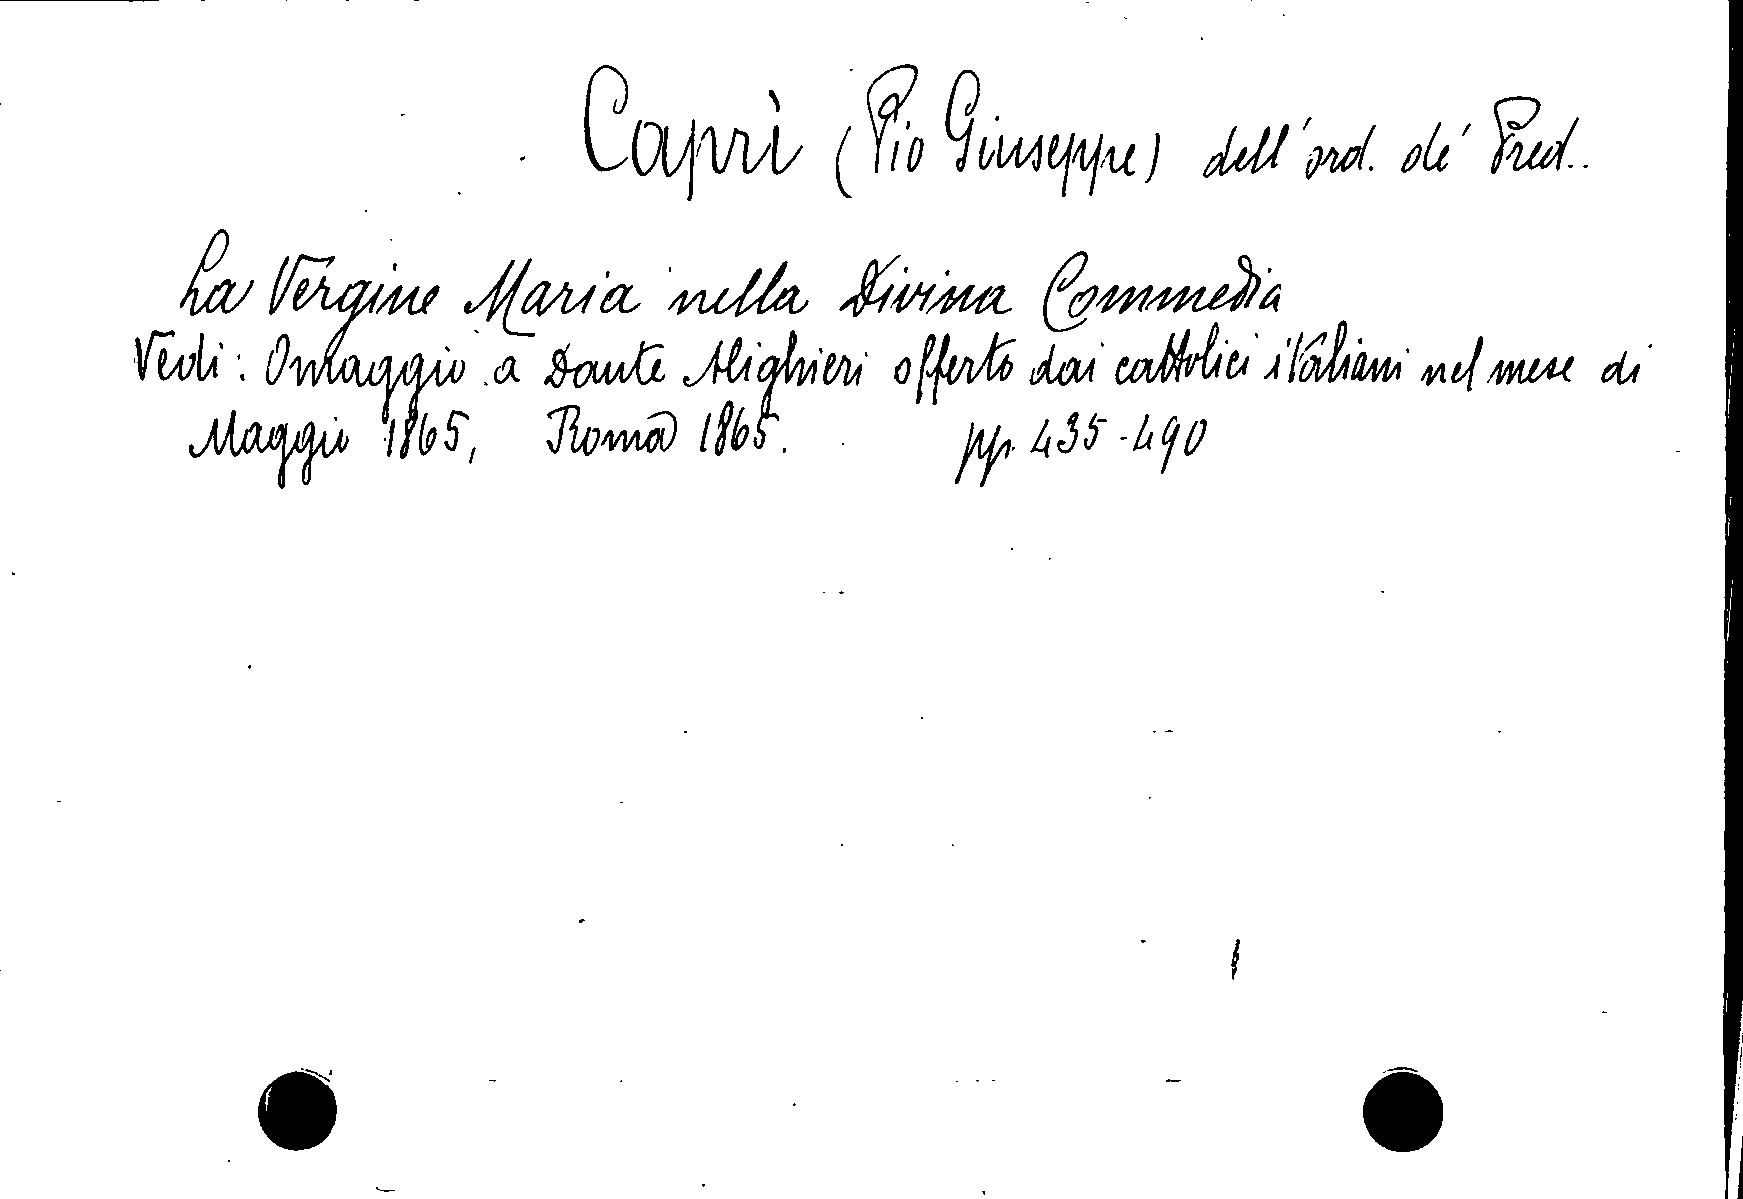 Caprì (Pio Giuseppe) dell'ord. de' Pred.
La Vergine Maria nella Divina Commedia
Vedi: Omaggio a Dante Alighieri offerto dai cattolici italiani nel mese di
Maggio 1865, Roma 1865. pp. 435-490